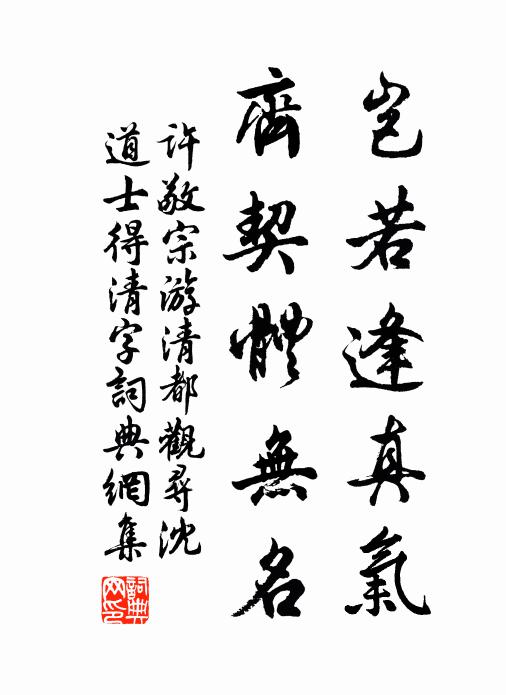 豈若逢真氣
齊契體無名
許敬宗游清都觀尋沈
道士得清字詞典網集
詞典網印